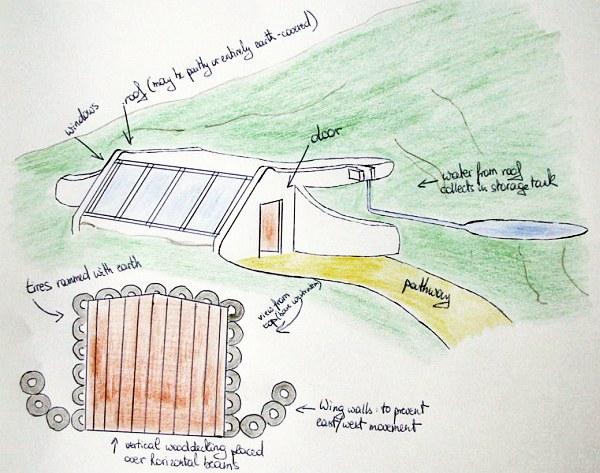 roof (may be partly or entirely earth-covered)
windows
door
water from roof
collects in storage tank
pathway
tires rammed with earth
view from
Wing walls: to prevent
east/west movement
vertical wooddecking placed
over horizontal beams